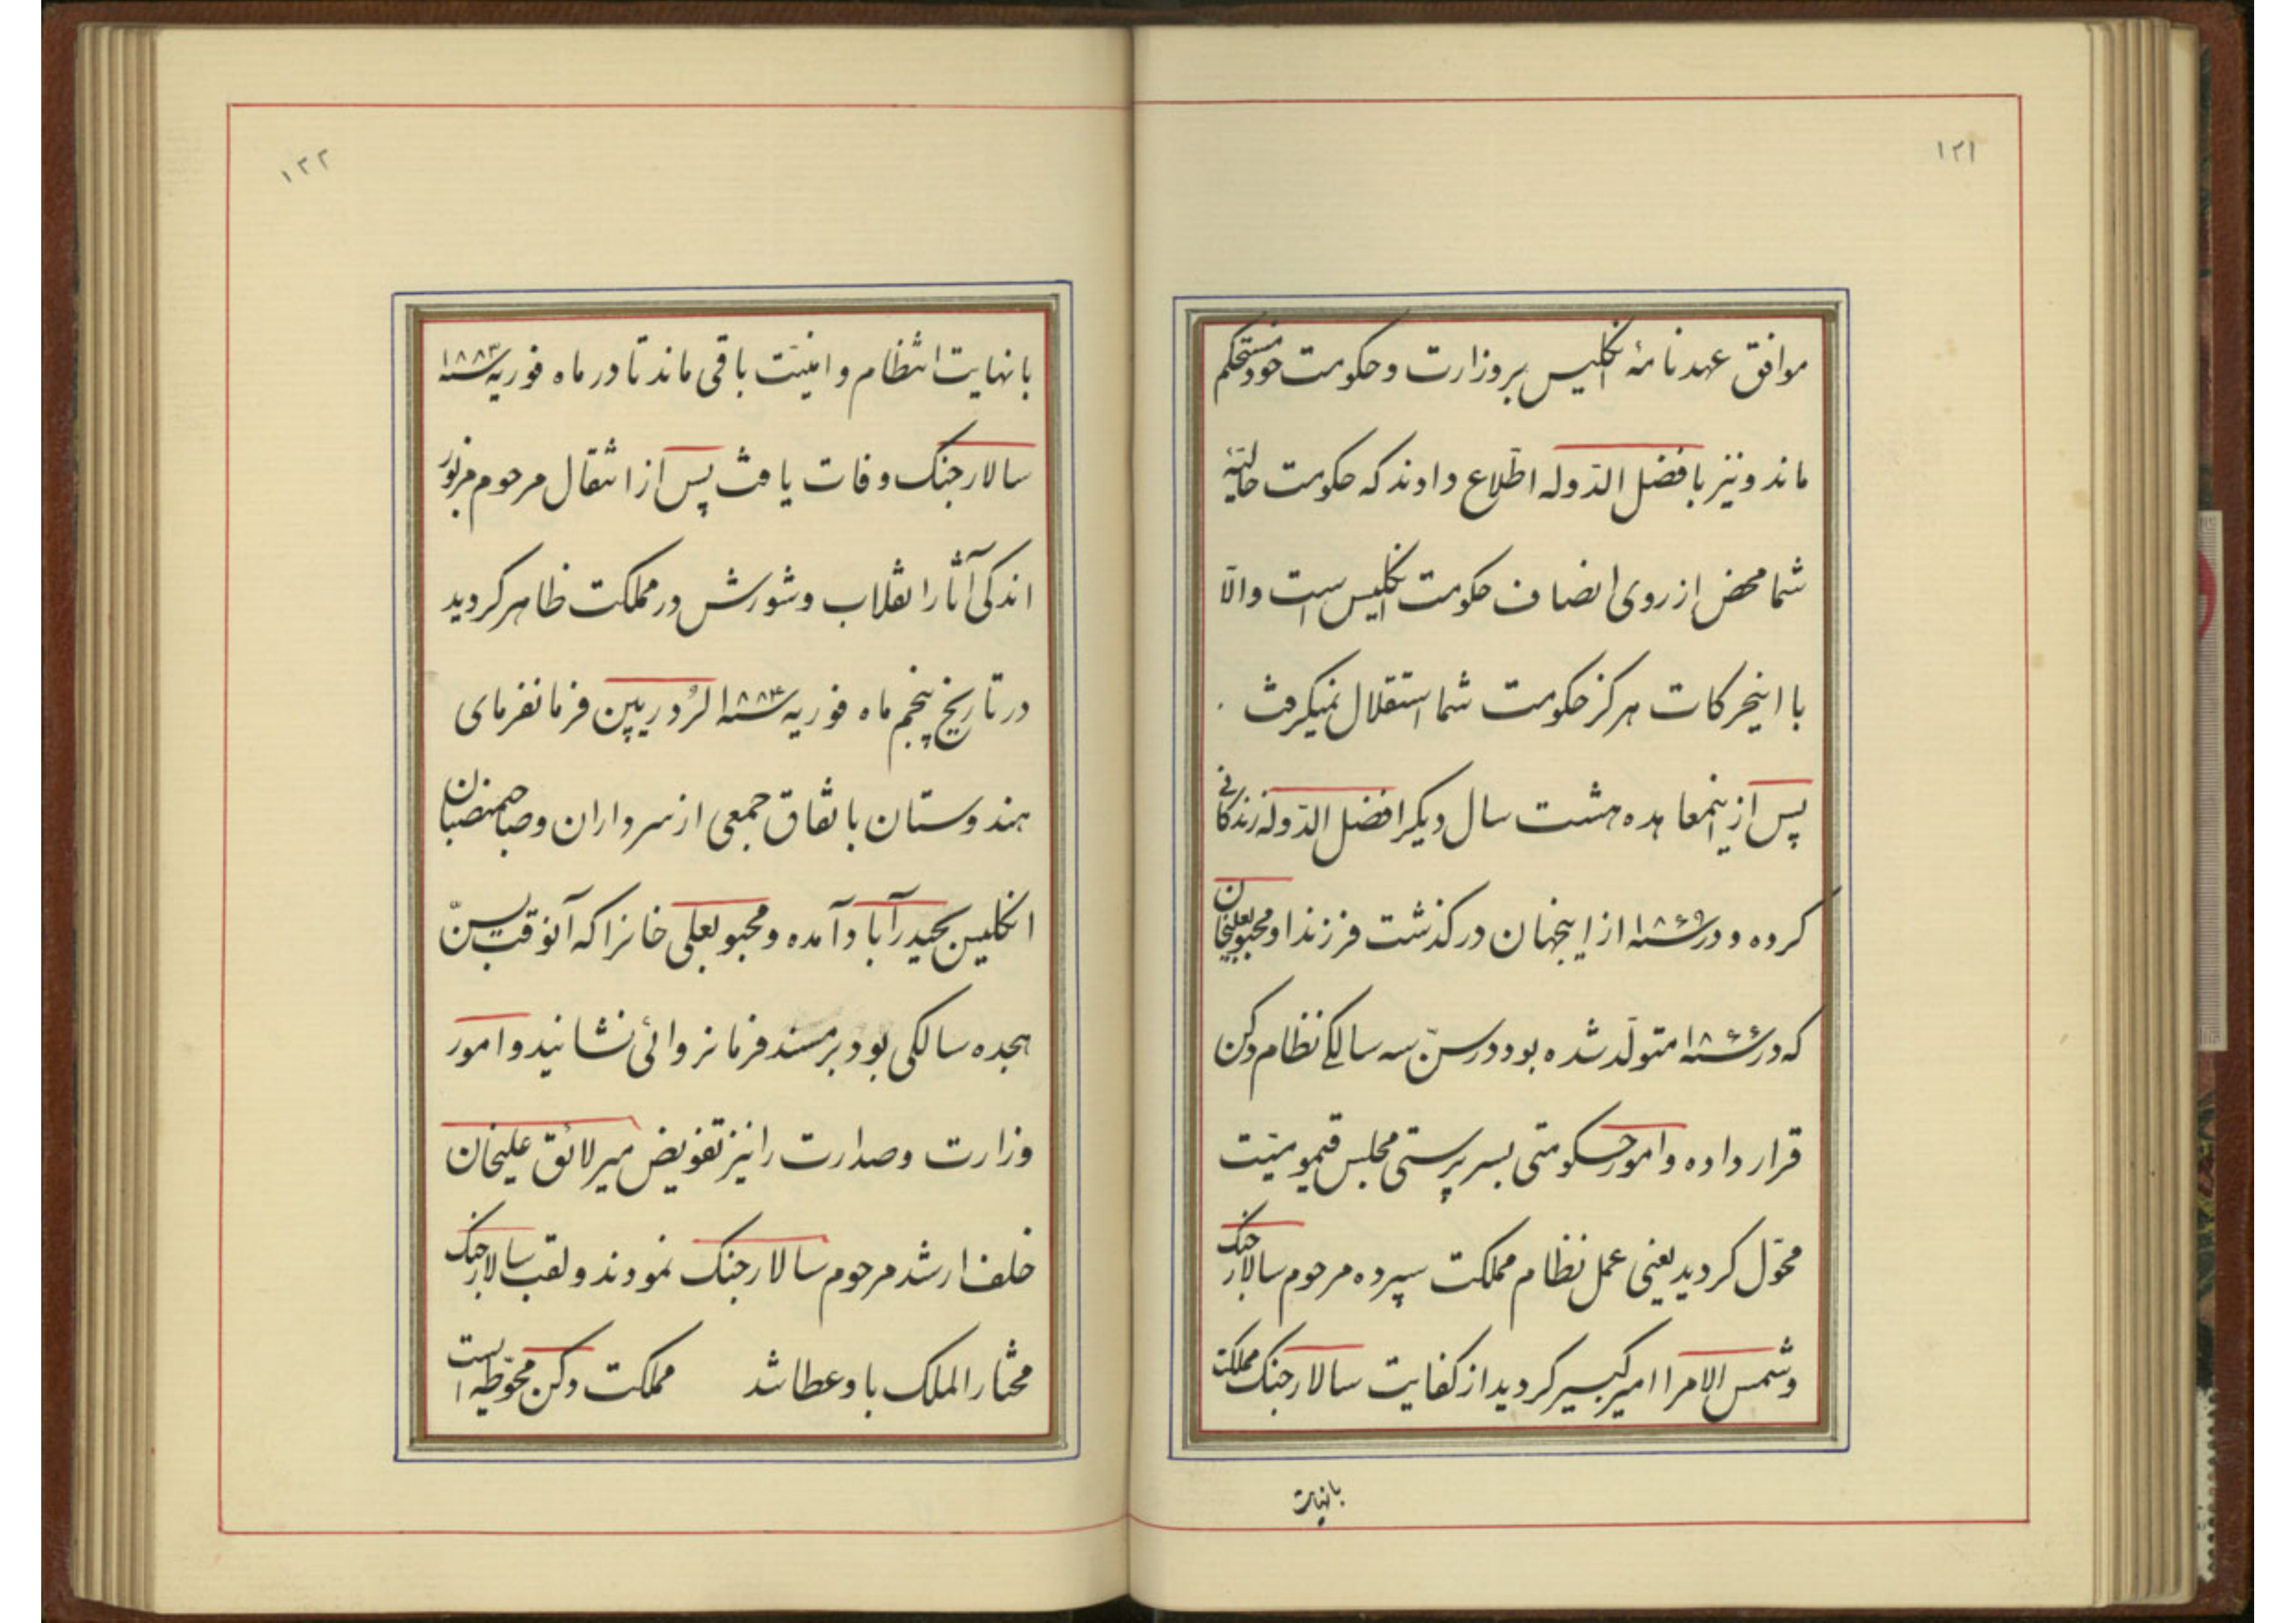 ۱۲۱
موافق عهدنامهٔ انگلیس بروزارت و حکومت خود مستحکم
ماند و نیز بافضل الدّوله اطّلاع دادند که حکومت حالیّهٔ
شما محض از روی انصاف حکومت انگلیس است والّا
با اینحرکات هرکز حکومت شما استقلال نمیکرفت
پس از اینمعاهده هشت سال دیکر افضل الدّوله زندکانی
کرده و در سنه ۱۸۶۹ از اینجهان درکذشت فرزند او محبوبعلیخان
که در سنه ۱۸۶۶ متولّد شده بود در سنّ سه سالکے نظام دکن
قرار داده و امور حکومتی بسرپرستی مجلس قیمومیّت
محوّل کردید یعنی عمل نظام مملکت سپرده مرحوم سالارجنک
و شمس الامرا امیرکبیر کردید از کفایت سالارجنک مملکت
بانهایت
۱۲۲
بانهایت انتظام و امنیّت باقی ماند تا در ماه فوریه سنه ۱۸۸۳
سالارجنک وفات یافت پس از انتقال مرحوم مزبور
اندکی آثار انقلاب و شورش در مملکت ظاهر کردید
در تاریخ پنجم ماه فوریه سنه ۱۸۸۴ لرُد ریپن فرمانفرمای
هندوستان باتفاق جمعی از سرداران و صاحبمنصبان
انکلیس بحیدرآباد آمده و محبوبعلی خانرا که آنوقت بسنّ
هجده سالکی بود بر مسند فرمانروائی نشانیند و امور
وزارت و صدارت را نیز تفویض میر لائق علیخان
خلف ارشد مرحوم سالارجنک نمودند و لقب سالارجنک
مختارالملک باو عطا شد مملکت دکن محوّطه است